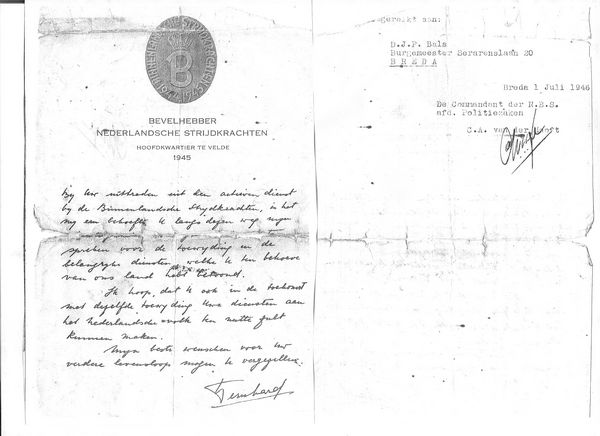 BEVELHEBBER
NEDERLANDSCHE STRIJDKRACHTEN
HOOFDKWARTIER TE VELDE
1945
By Uw uittreden uit den actieven dienst
by de Binnenlandsche Strydkrachten, is het
my een behoefte U langs dezen weg myn
spreken voor de toewyding en de
belangryke diensten, welke U ten behoeve
van ons land hebt betoond.
Ik hoop, dat U ook in de toekomst
met dezelfde toewyding Uwe diensten aan
het Nederlandsche volk ten nutte zult
kunnen maken.
Myn beste wenschen voor Uw
verdere levensloop mogen U vergezellen.
Bernhard
gereikt aan:
B.J.P. Bals
Burgemeester Serarenslaan 20
BREDA
Breda 1 Juli 1946
De Commandant der N.B.S.
afd. Politiezaken
C.A. van der Hooft